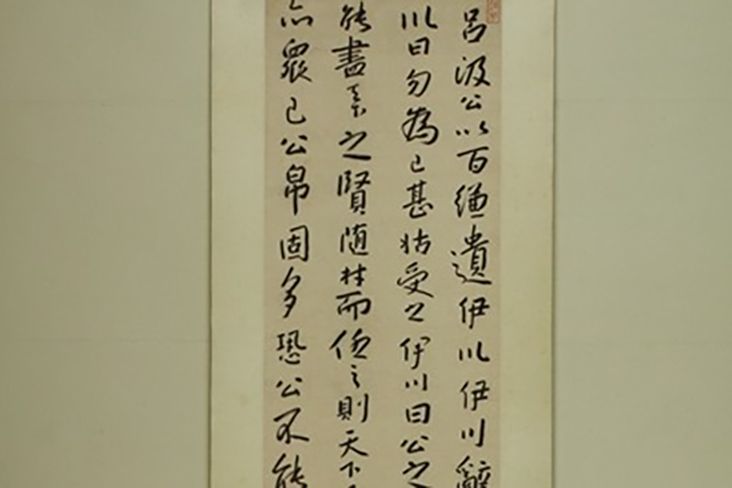 呂汲公以百縑遺伊川伊川辭
川曰勿為已甚姑受之伊川曰公之
能盡之賢隨材而任之則天下
亦眾已公帛固多恐公不能